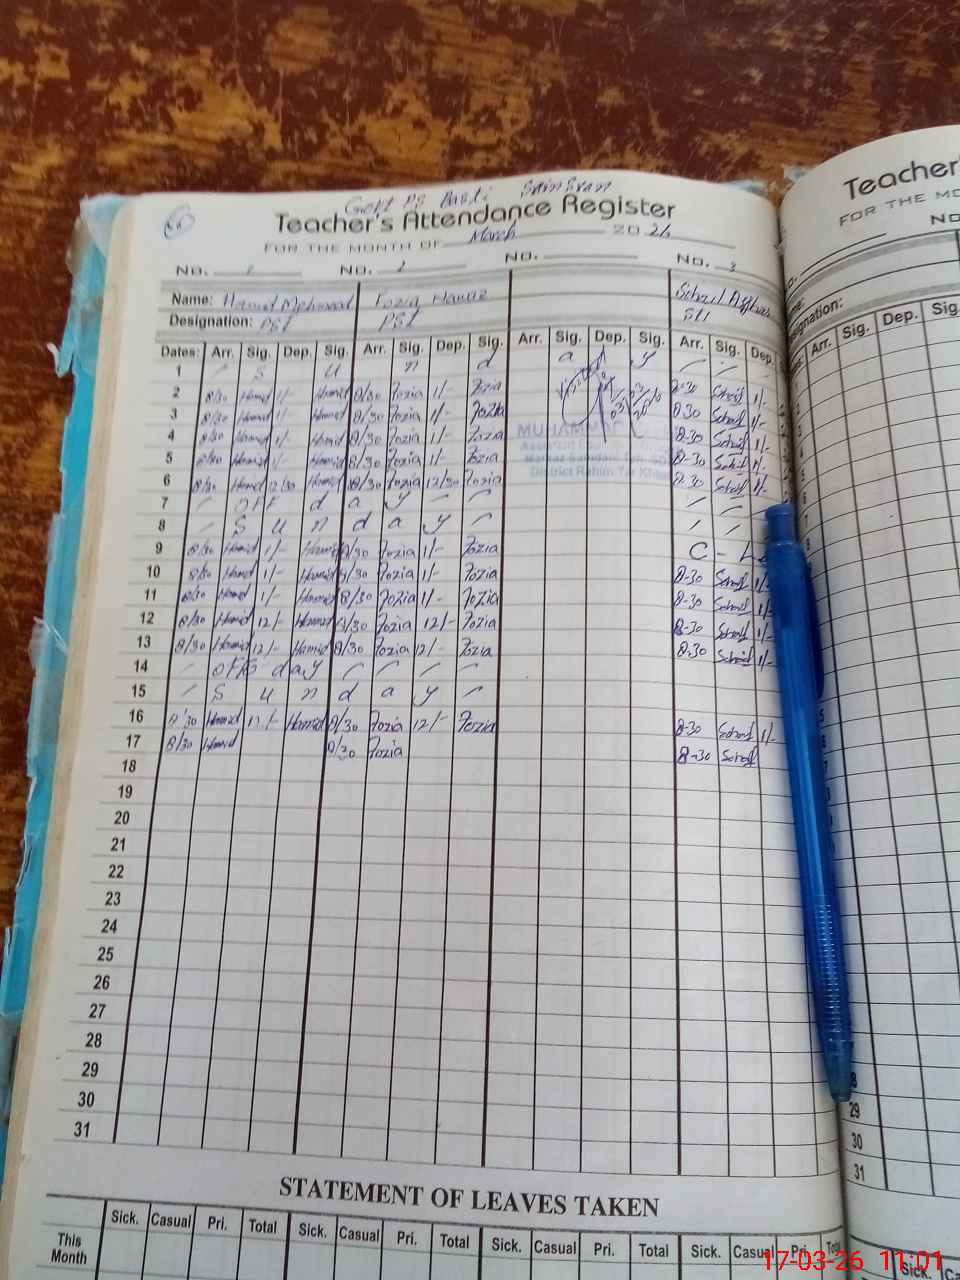 Govt PS Basti
Teacher's Attendance Register
Teacher's
FOR THE MONTH OF March 2026
FOR THE MO
No. 1 No. 2 No. No. 3
Name: Hamid Mehmood Fozia Nawaz
Designation: PST PST
Dates: Arr. Sig. Dep. Sig. Arr. Sig. Dep. Sig. Arr. Sig. Dep. Sig. Arr. Sig. Dep.
Arr. Sig. Dep. Sig.
1 S u n d a y
2 8/30 Hamid 1/- Hamid 8/30 Fozia 1/- Fozia 8-30 1/-
3 8/30 Hamid 1/- Hamid 8/30 Fozia 1/- Fozia 8-30 1/-
4 8/30 Hamid 1/- Hamid 8/30 Fozia 1/- Fozia 8-30 1/-
MUHAMMAD
5 8/30 Hamid 1/- Hamid 8/30 Fozia 1/- Fozia 8-30 1/-
6 8/30 Hamid 12/30 Hamid 8/30 Fozia 12/30 Fozia 8-30 1/-
District Rahim Yar Khan
7 OFF d a y
8 S u n d a y
9 8/30 Hamid 1/- Hamid 8/30 Fozia 1/- Fozia C - L
10 8/30 Hamid 1/- Hamid 8/30 Fozia 1/- Fozia 8-30 1/-
11 8/30 Hamid 1/- Hamid 8/30 Fozia 1/- Fozia 8-30 1/-
12 8/30 Hamid 12/- Hamid 8/30 Fozia 12/- Fozia 8-30 1/-
13 8/30 Hamid 12/- Hamid 8/30 Fozia 12/- Fozia 8-30 1/-
14 OFF day
15 S u n d a y
16 8/30 Hamid 12/- Hamid 8/30 Fozia 12/- Fozia 8-30 1/-
17 8/30 Hamid 8/30 Fozia 8-30
18
19
20
21
22
23
24
25
26
27
28
29
30
31
29
30
31
STATEMENT OF LEAVES TAKEN
Sick. Casual Pri. Total Sick. Casual Pri. Total Sick. Casual Pri. Total Sick. Casual Pri. Total
This Month
Sick.
17-03-26 11:01